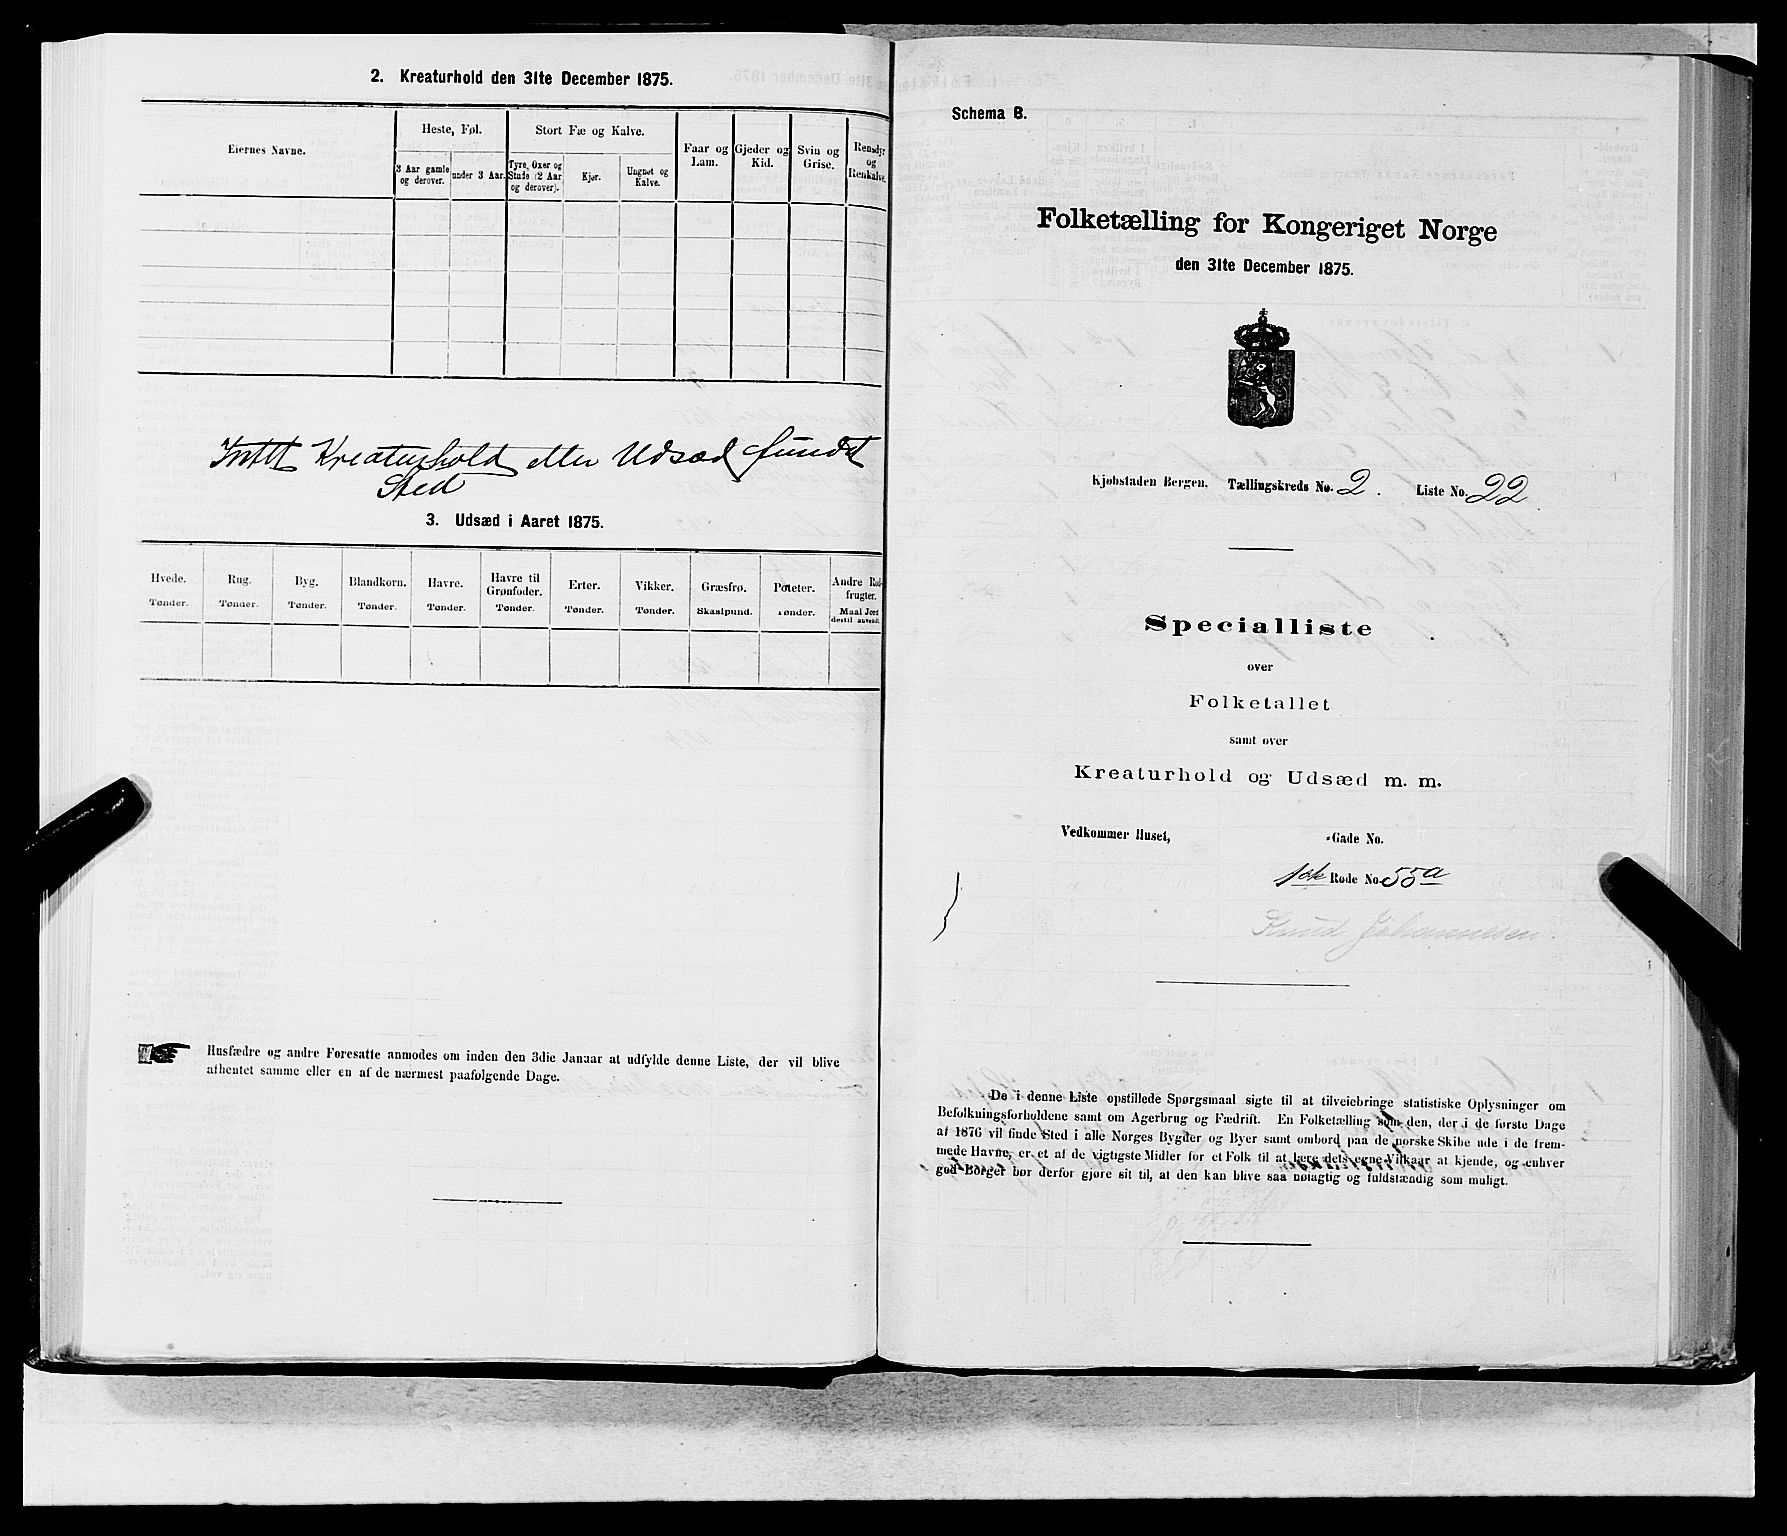 2. Kreaturhold den 31te December 1875.
Eiernes Navne.
Heste, Føl.
Stort Fæ og Kalve.
Faar og
Lam.
Gjeder og
Kid.
Svin og
Grise.
Rensdyr
og
Renkalve.
3 Aar gamle
og derover.
under 3 Aar.
Tyre, Oxer og
Stude (2 Aar
og derover).
Kjør.
Ungnøt og
Kalve.
Intet Kreaturhold eller Udsæd fundet
Sted
3. Udsæd i Aaret 1875.
Hvede.
Tønder.
Rug.
Tønder.
Byg.
Tønder.
Blandkorn.
Tønder.
Havre.
Tønder.
Havre til
Grønfoder.
Tønder.
Erter.
Tønder.
Vikker.
Tønder.
Græsfrø.
Skaalpund.
Poteter.
Tønder.
Andre Rod-
frugter.
Maal Jord
dertil anvendt.
Husfædre og andre Foresatte anmodes om inden den 3die Januar at udfylde denne Liste, der vil blive
afhentet samme eller en af de nærmest paafølgende Dage.
Schema B.
Folketælling for Kongeriget Norge
den 31te December 1875.
Kjøbstaden Bergen. Tællingskreds No. 2. Liste No. 22
Specialliste
over
Folketallet
samt over
Kreaturhold og Udsæd m. m.
Vedkommer Huset, -Gade No.
Rode No. 55a
Knud Johannesen.
De i denne Liste opstillede Spørgsmaal sigte til at tilveiebringe statistiske Oplysninger om
Befolkningsforholdene samt om Agerbrug og Fædrift. En Folketælling som den, der i de første Dage
af 1876 vil finde Sted i alle Norges Bygder og Byer samt ombord paa de norske Skibe ude i de frem-
mede Havne, er et af de vigtigste Midler for et Folk til at lære dets egne Vilkaar at kjende, og enhver
god Borger bør derfor gjøre sit til, at den kan blive saa nøiagtig og fuldstændig som muligt.